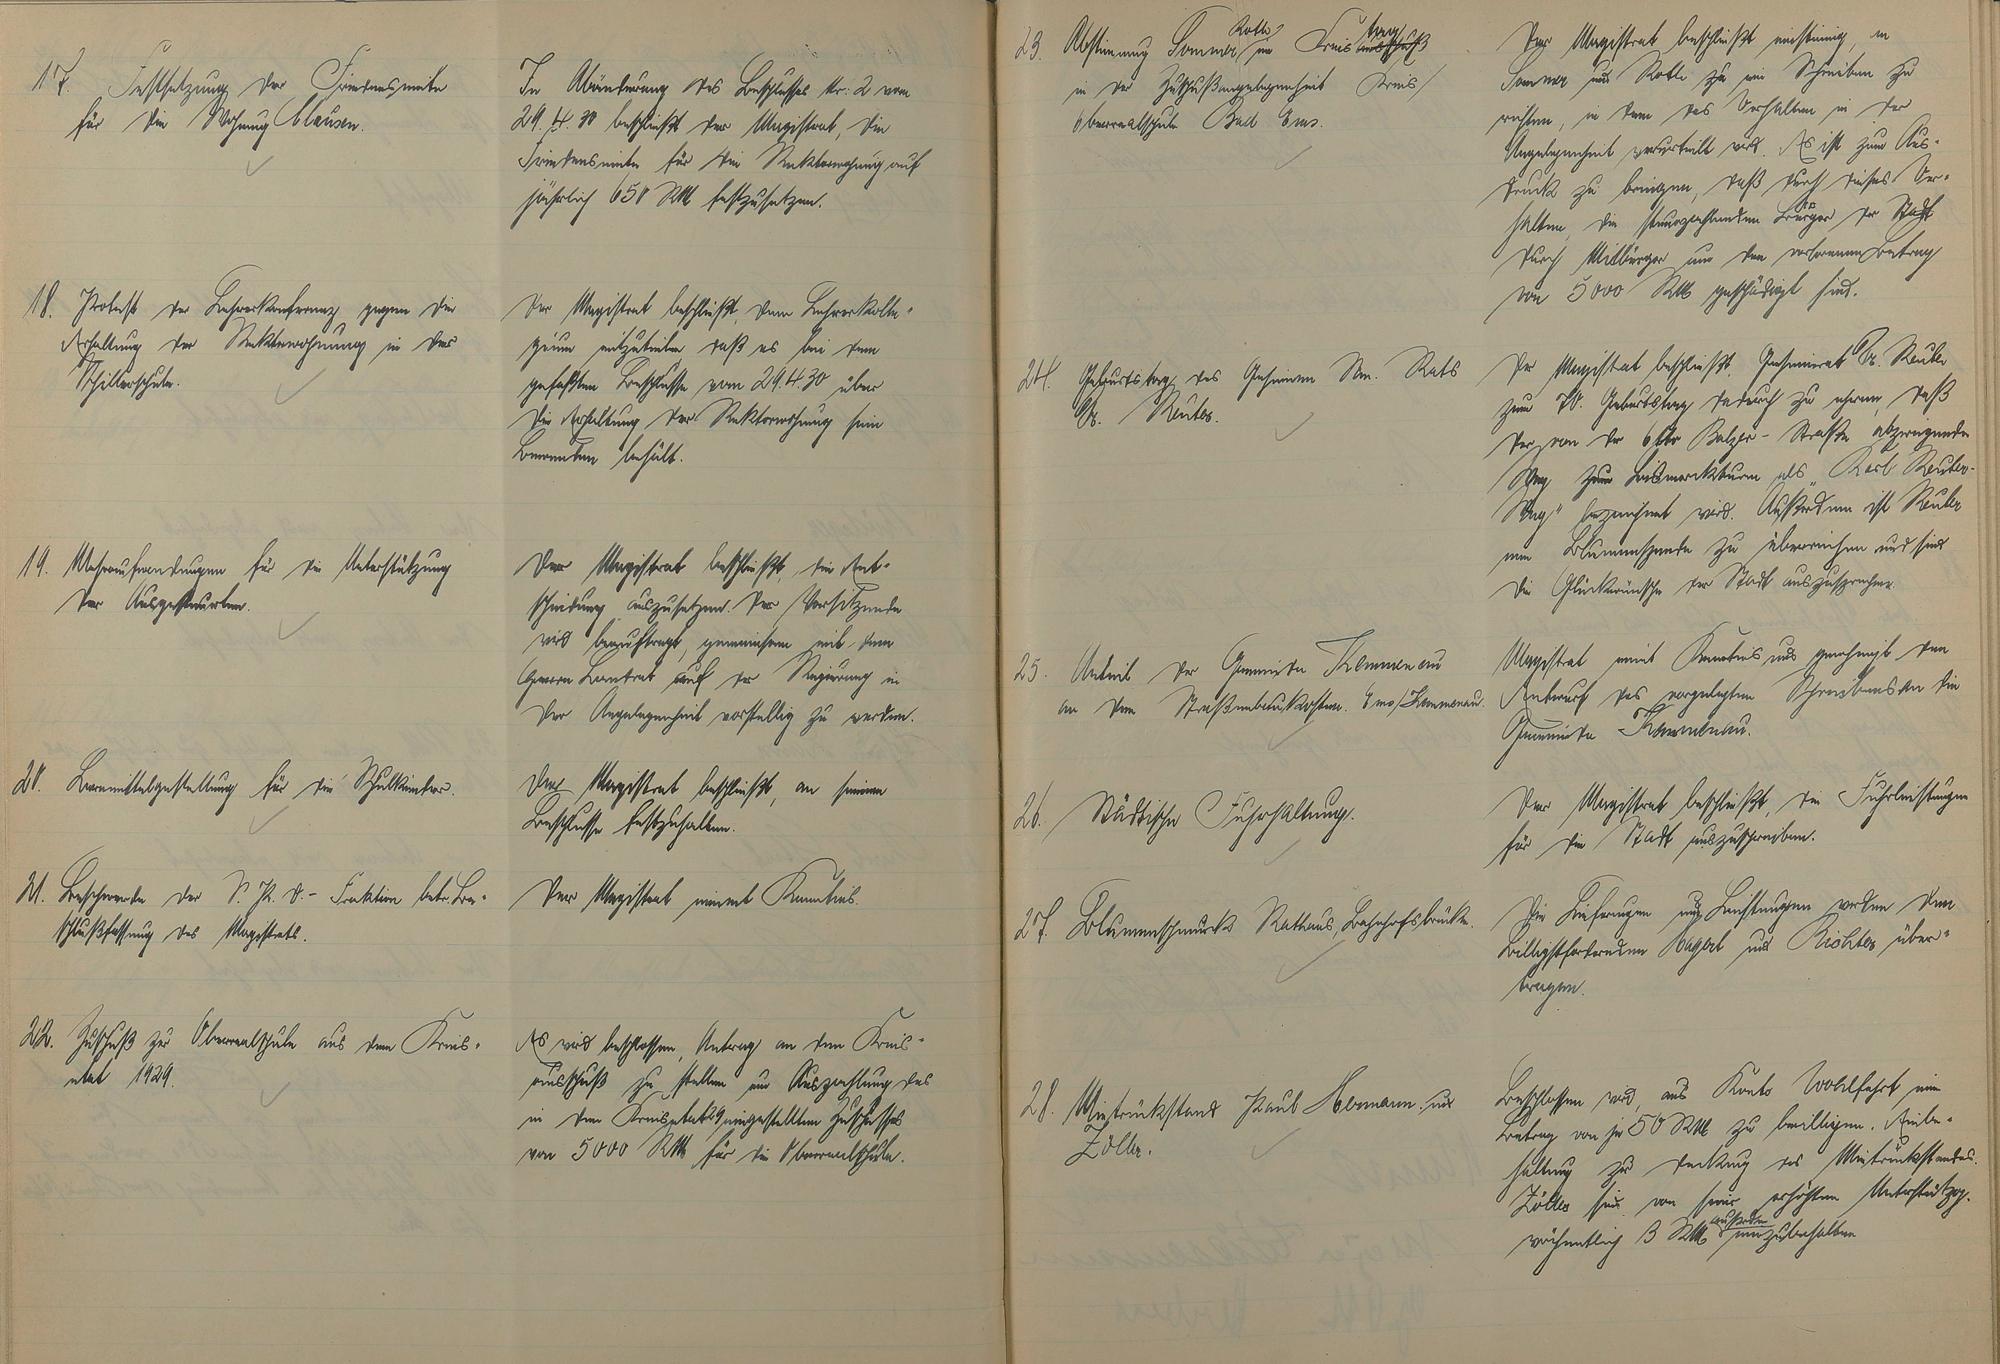 17. Festsetzung der Friedensmiete
für die Wohnung Clausen.
In Abänderung des Beschlusses Nr: 2 vom
29.4.30 beschließt der Magistrat, die
Friedensmiete für die Rektorwohnung auf
jährlich 650 RM festzusetzen.
18. Protest der Lehrerkonferenz gegen die
Erhaltung der Rektorwohnung in der
Schillerschule.
Der Magistrat beschließt, dem Lehrerkolle-
gium mitzuteilen, daß es bei dem
gefaßten Beschlusse vom 29.4.30 über
die Erhaltung der Rektorwohnung sein
Bewenden behält.
19. Mehraufwendungen für die Unterstützung
der Ausgesteuerten.
Der Magistrat beschließt, die Ent-
scheidung auszusetzen. Der Vorsitzende
wird beauftragt, gemeinsam mit dem
Herrn Landrat auf der Regierung in
der Angelegenheit vorstellig zu werden.
20. Lernmittelgestellung für die Schulkinder.
Der Magistrat beschließt, an seinem
Beschlusse festzuhalten.
21. Beschwerde der S.P.D.- Fraktion betr. Be-
schlußfassung des Magistrats.
Der Magistrat nimmt Kenntnis.
22. Zuschuß zur Oberrealschule aus dem Kreis-
etat 1929.
Es wird beschlossen, Antrag an den Kreis-
ausschuß zu stellen um Auszahlung des
in dem Kreisetat 29 eingestellten Zuschusses
von 5000 RM für die Oberrealschule.
23. Abstimmung Sommer/Roth im Kreistag
in der Zuschußangelegenheit Kreis/
Oberrealschule Bad Ems.
Der Magistrat beschließt einstimmig, an
Sommer und Roth je ein Schreiben zu
richten, in dem das Verhalten in der
Angelegenheit verurteilt wird. Es ist zum Aus-
druck zu bringen, daß durch dieses Ver-
halten, die steuerzahlenden Bürger der Stadt
durch Mitbürger um den verlorenen Betrag
von 5000 RM geschädigt sind.
24. Geburtstag des Geheimen San. Rats
Dr. Reuter.
Der Magistrat beschließt, Geheimrat Dr. Reuter
zum 70. Geburtstag dadurch zu ehren, daß
der von der Otto Balzer-Straße abzweigende
Weg zum Bismarckturm als „Karl Reuter-
Weg" bezeichnet wird. Außerdem ist Reuter
eine Blumenspende zu überreichen und sind
die Glückwünsche der Stadt auszusprechen.
25. Anteil der Gemeinde Kemmenau
an den Straßenbaukosten Ems/Kemmenau.
Magistrat nimmt Kenntnis und genehmigt den
Entwurf des vorgelegten Schreibens an die
Gemeinde Kemmenau.
26. Städtische Fuhrhaltung.
Der Magistrat beschließt, die Fuhrleistungen
für die Stadt auszuschreiben.
27. Blumenschmuck Rathaus, Bahnhofsbrücke.
Die Lieferungen und Leistungen werden den
Billigstfordernden und Richter über-
tragen.
28. Mietrückstand Paul Hermann und
Zöller.
Beschlossen wird, aus Konto Wohlfahrt einen
Betrag von je 50 RM zu bewilligen. Einbe-
haltung zur Deckung des Mietrückstandes.
Zöller sind von seiner erhöhten Unterstützg.
wöchentlich 3 RM außerdem einzubehalten